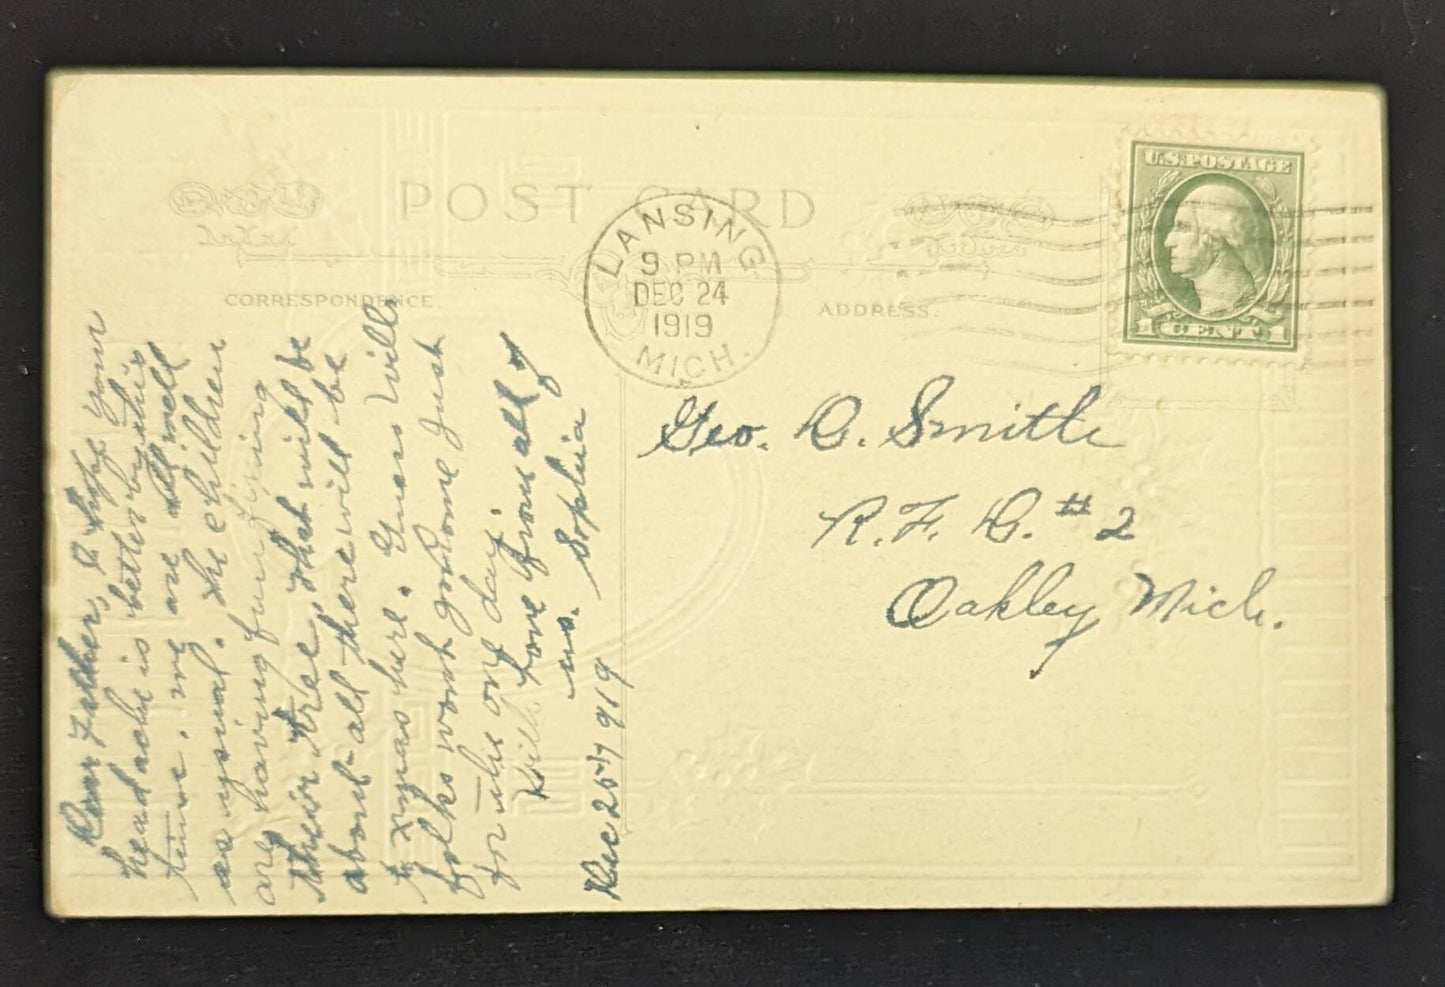 POST CARD
CORRESPONDENCE.
ADDRESS.
U.S. POSTAGE
1 CENT 1
LANSING
9 PM
DEC 24
1919
MICH.
Geo. D. Smith
R. F. D. #2
Oakley Mich.
Dear Father, I hope your
head ache is better by this
time. we are all well
as usual. The children
are having fun fixing
their tree, that will be
about all there will be
to xmas here. Guess Will
folks wont go home just
for the one day.
Will. Love from all of
us. Sophia
Dec 25, 1919